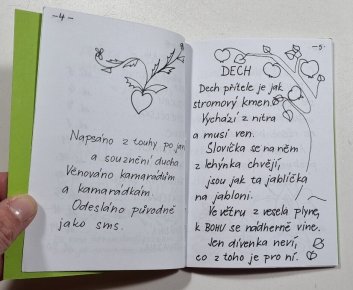 -4-
Napsáno z touhy po jan
a souznění ducha.
Věnováno kamarádům
a kamarádkám.
Odesláno původně
jako sms.
-5-
DECH
Dech přítele je jak
stromový kmen.
Vychází z nitra
a musí ven.
Slovíčka se na něm
z lehýnka chvějí,
jsou jak ta jablíčka
na jabloni.
Ve větru z vesela plyne,
k BOHU se nádherně vine.
Jen dívenka neví,
co z toho je pro ní.